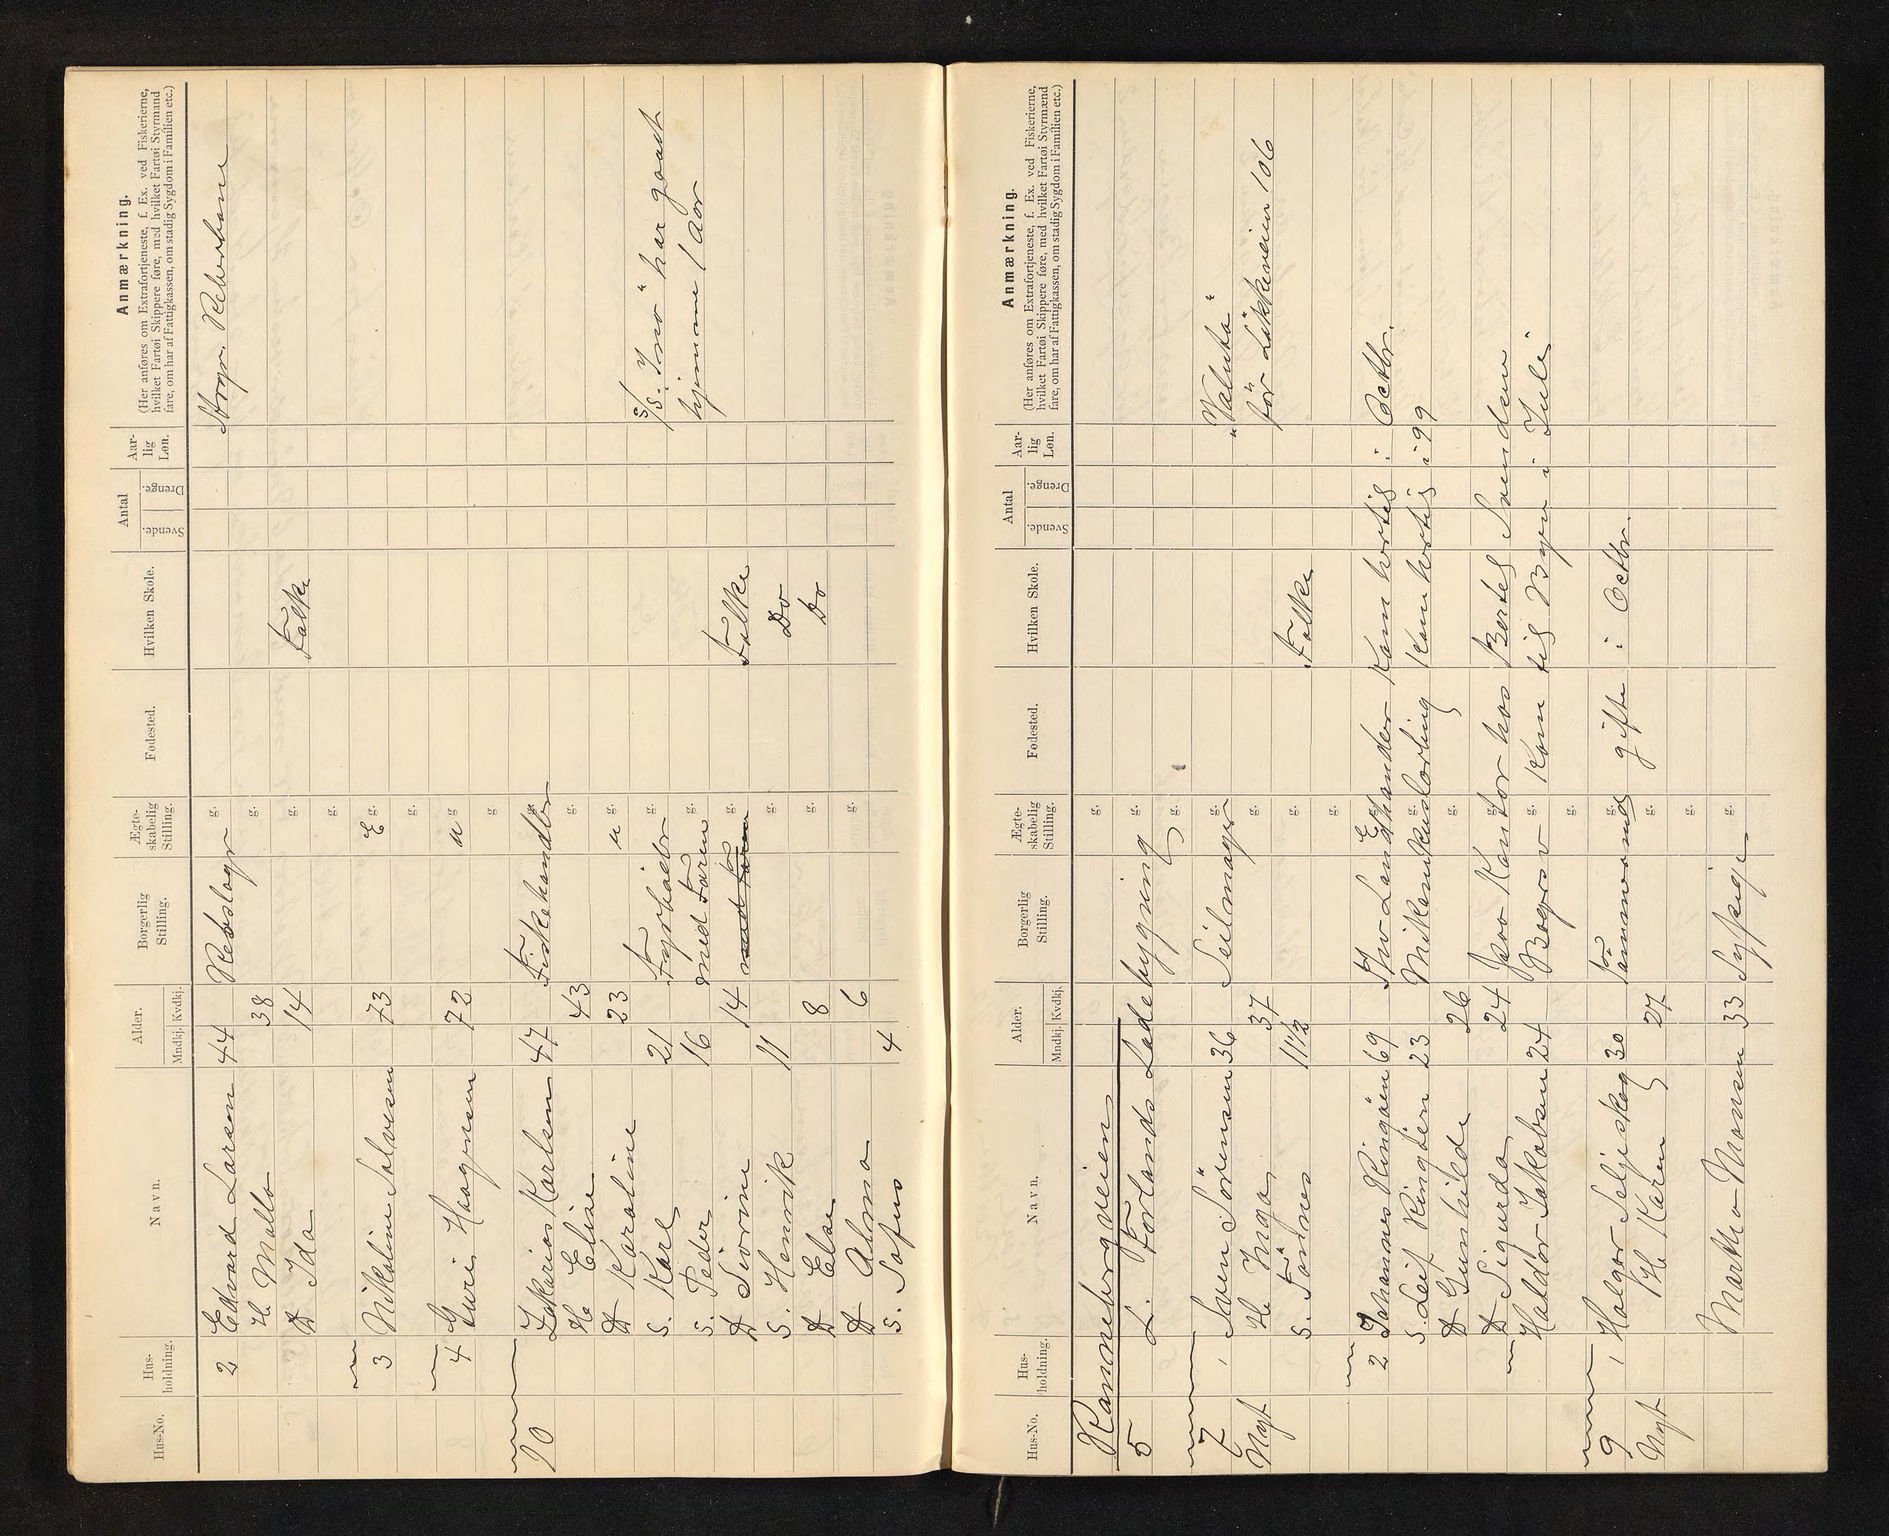 Hus-No. Hus-holdning. Navn. Alder. Mndkj. Kvdkj. Borgerlig Stilling. Ægte-skabelig Stilling. Fødested. Hvilken Skole. Antal Svende. Drenge. Aar-lig Løn. Anmærkning.
(Her anføres om Extrafortjeneste, f. Ex. ved Fiskerierne, hvilket Fartøi Skippere føre, med hvilket Fartøi Styrmænd fare, om har af Fattigkassen, om stadig Sygdom i Familien etc.)
2 Edvard Larsen 44 Rebslagr g. Reberbane
H. Malla 38 g.
D Ida 14 g. Folke
g.
3 Nikoline Salvesen 73 E g.
g.
4 Guri Haagensen 72 u g.
g.
10 Zakarias Karlsen 47 Fiskehandlr g.
H. Elise 43 g.
D Karoline 23 u g.
S. Karl 21 Fyrböter g. s/s. "Ino" har gaaet
S. Peder 16 med Faren g. hjemme 1 Aar
D Sivrine 14 med Faren g. Folke
S. Henrik 11 g. Do
D Else 8 g. Do
D Alma 6 g.
S. Sofus 4
Hus-No. Hus-holdning. Navn. Alder. Mndkj. Kvdkj. Borgerlig Stilling. Ægte-skabelig Stilling. Fødested. Hvilken Skole. Antal Svende. Drenge. Aar-lig Løn. Anmærkning.
(Her anføres om Extrafortjeneste, f. Ex. ved Fiskerierne, hvilket Fartøi Skippere føre, med hvilket Fartøi Styrmænd fare, om har af Fattigkassen, om stadig Sygdom i Familien etc.)
Rannebergveien g.
5 L. Forlands Ladebygning g.
g.
7 1 Sven Sörensen 36 Seilmager g. „Valuta"
Nyt H. Inga 37 g. för Lökkeveien 106
S. Tönnes 11½ g. Folke
g.
2 Johannes Ringöen 69 Landhander E g. Kom hertil i Octbr.
S. Leif Ringöen 23 Mikanikuslærling g. Kom hertil i 99
D Gunhilde 26 g.
D Sigurda 24 paa Kontor hos Bertel Svendsen g.
Haldor Jakobsen 24 Bagersv g. Kom til Byen i Juli
g.
9 1 Holger Seljeskog 30 Tömmermd g. gifte i Octbr.
Nyt H. Karen 27 g.
g.
Martha Monsen 33 Sypige g.